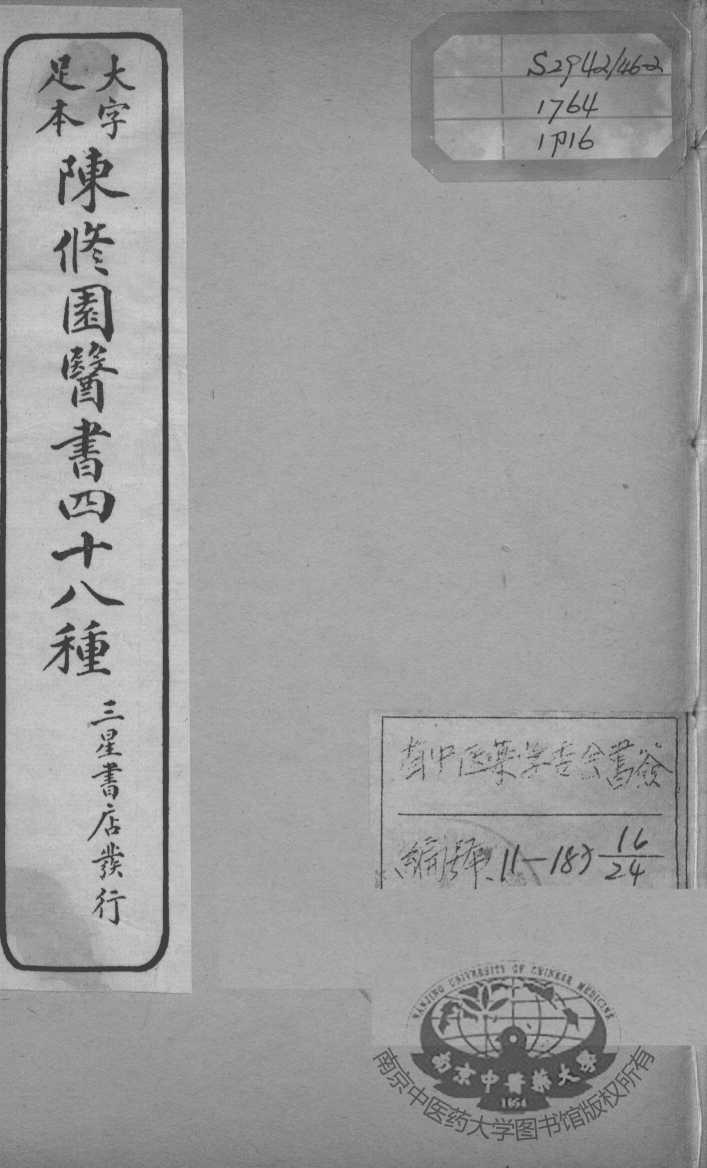 大字
足本
陳修園醫書四十八種
三星書店發行
S2942/46-2
1764
1P16
編號 11-183 16/24
NANJING UNIVERSITY OF CHINESE MEDICINE
南京中醫藥大學
1954
南京中医药大学图书馆版权所有